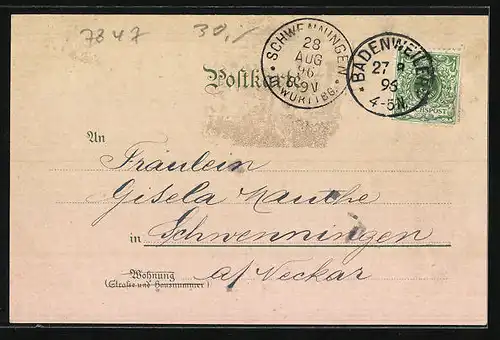 7847 30,-
SCHWENNINGEN
28
AUG
96
8-9V
WÜRTTBG.
BADENWEILER
27 8
96
4-5N
Postkarte
An
Fräulein
Gisela Mauthe
in Schwenningen
a/ Neckar
Wohnung
(Straße und Hausnummer)